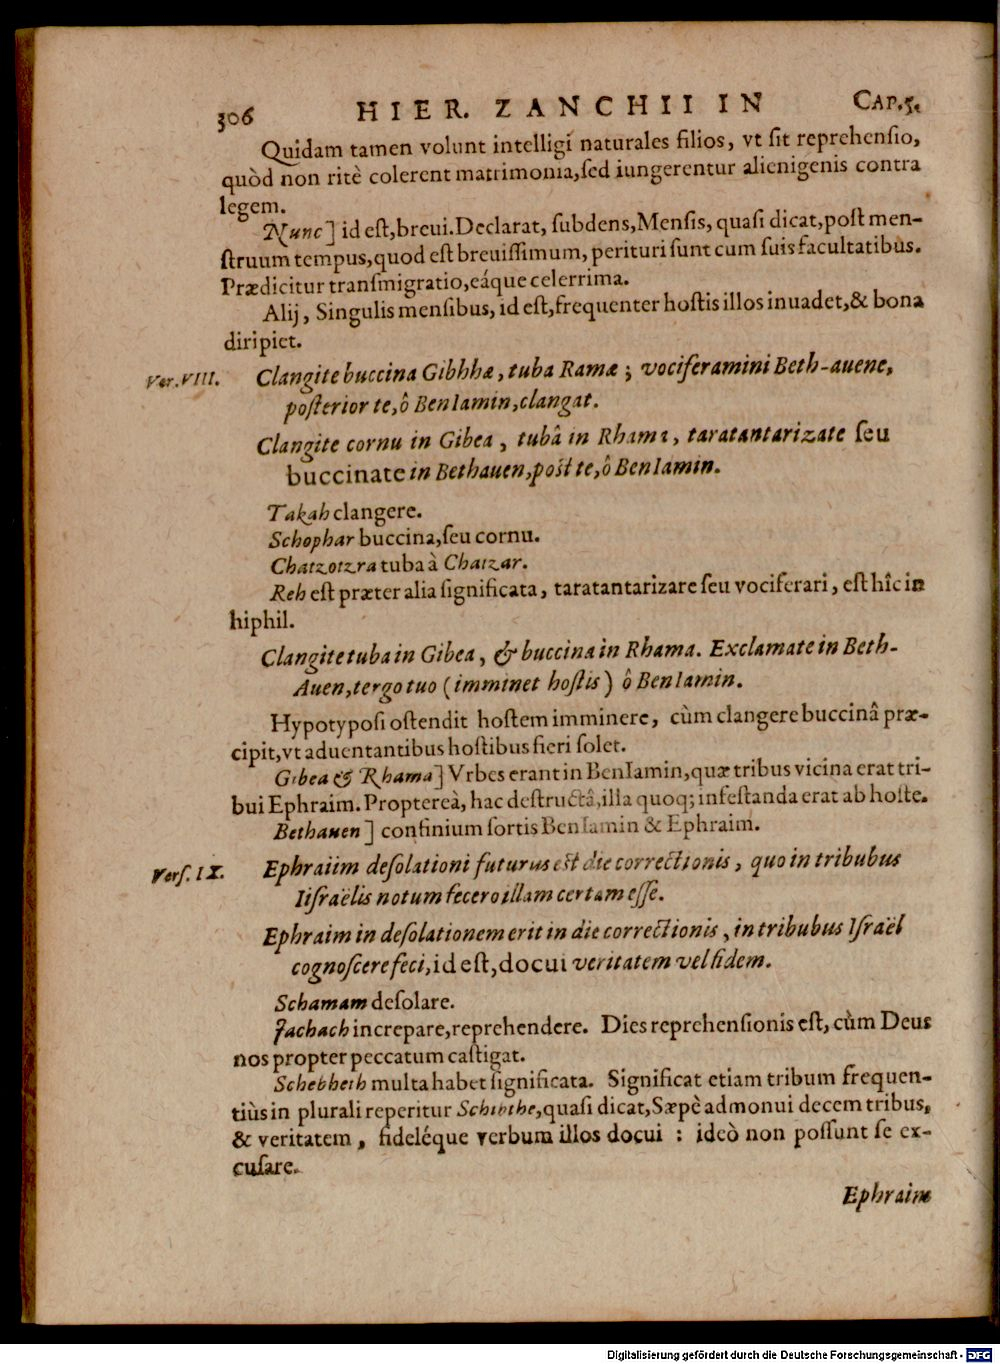 306 HIER. ZANCHII IN CAP.5.
Quidam tamen volunt intelligi naturales filios, vt ſit reprehenſio,
quòd non ritè colerent matrimonia,ſed iungerentur alienigenis contra
legem.
Nunc] id eſt,breui.Declarat, ſubdens,Menſis, quaſi dicat,poſt men-
ſtruum tempus,quod eſt breuiſſimum, perituri ſunt cum ſuis facultatibùs.
Prædicitur tranſmigratio,eáque celerrima.
Alij, Singulis menſibus, id eſt,frequenter hoſtis illos inuadet,& bona
diripiet.
Ver.VIII. Clangite buccina Gibhhæ, tuba Ramæ; vociferamini Beth-auene,
poſterior te,ô BenIamin,clangat.
Clangite cornu in Gibea, tubâ in Rhama, taratantarizate ſeu
buccinate in Bethauen,poſt te,ô BenIamin.
Takah clangere.
Schophar buccina,ſeu cornu.
Chatzotzra tuba à Chatzar.
Reh eſt præter alia ſignificata, taratantarizare ſeu vociferari, eſt hîc in
hiphil.
Clangite tuba in Gibea, & buccina in Rhama. Exclamate in Beth-
Auen,tergo tuo (imminet hoſtis) ô BenIamin.
Hypotypoſi oſtendit hoſtem imminere, cùm clangere buccinâ præ-
cipit,vt aduentantibus hoſtibus fieri ſolet.
Gibea & Rhama] Vrbes erant in BenIamin,quæ tribus vicina erat tri-
bui Ephraim. Proptereà, hac deſtructâ,illa quoq; infeſtanda erat ab hoſte.
Bethauen] confinium ſortis BenIamin & Ephraim.
Verſ. IX. Ephraiim deſolationi futurus eſt die correctionis, quo in tribubus
Iiſraëlis notum fecero illam certam eſſe.
Ephraim in deſolationem erit in die correctionis, in tribubus Iſraël
cognoſcere feci,id eſt,docui veritatem vel fidem.
Schamam deſolare.
Jachach increpare,reprehendere. Dies reprehenſionis eſt, cùm Deus
nos propter peccatum caſtigat.
Schebheth multa habet ſignificata. Significat etiam tribum frequen-
tiùs in plurali reperitur Schibthe,quaſi dicat,Sæpè admonui decem tribus,
& veritatem, fideléque verbum illos docui: ideò non poſſunt ſe ex-
cuſare.
Ephraim
Digitalisierung gefördert durch die Deutsche Forschungsgemeinschaft - DFG